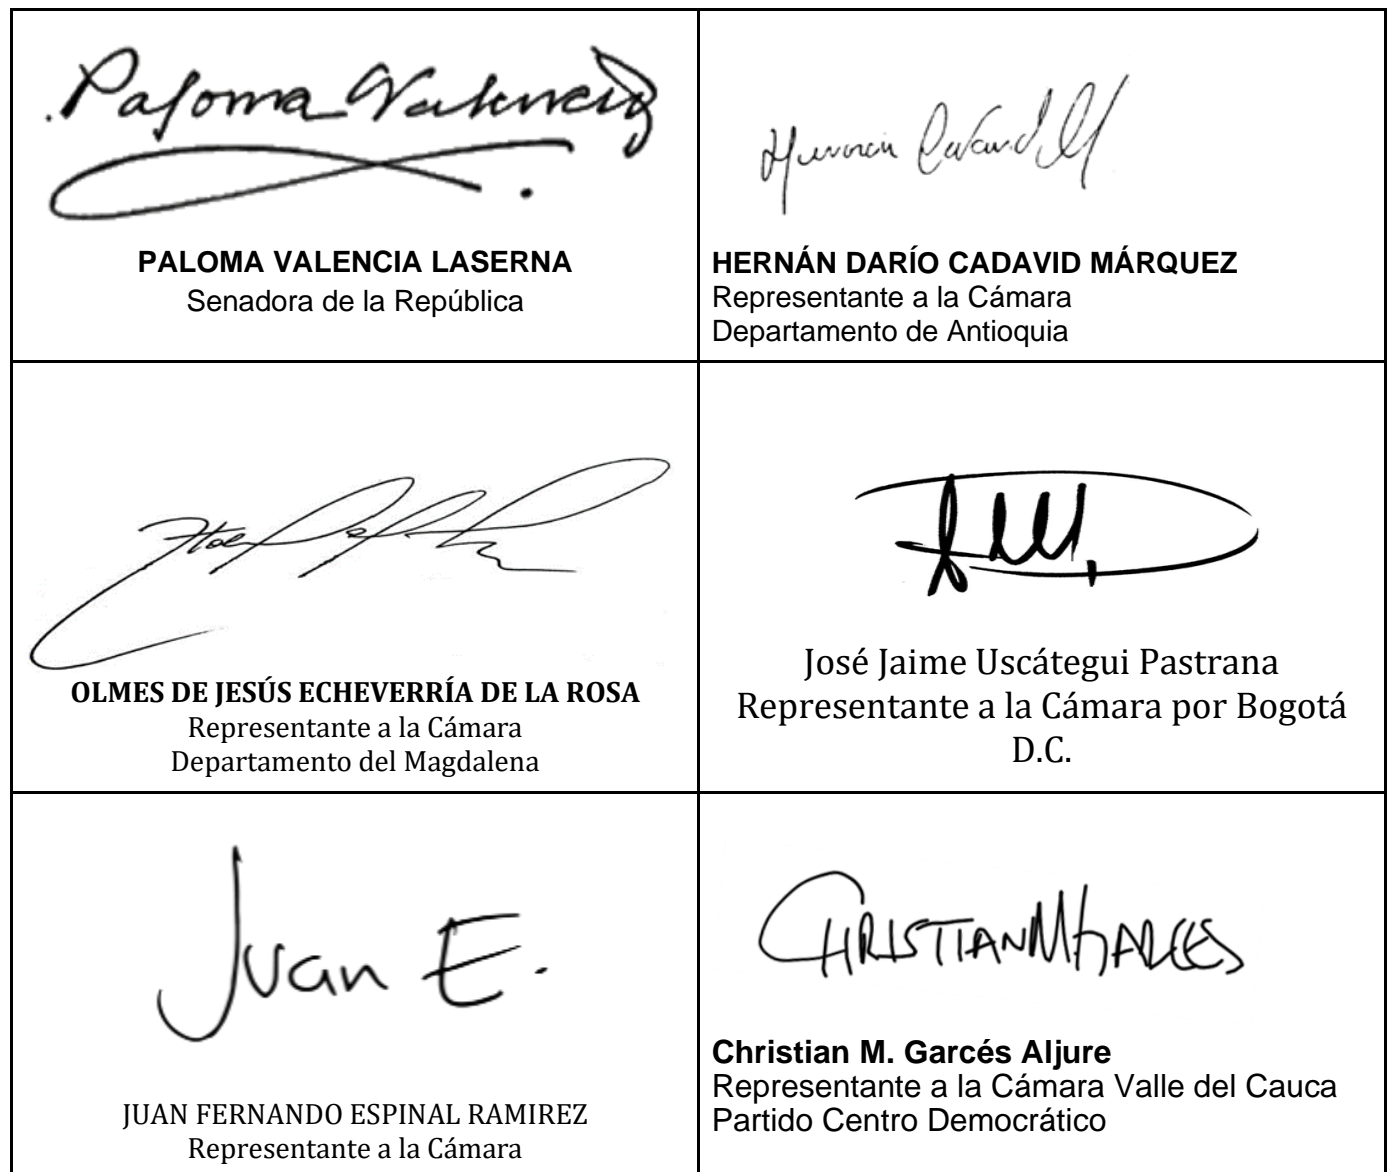 Paloma Valencia
PALOMA VALENCIA LASERNA
Senadora de la República
HERNÁN DARÍO CADAVID MÁRQUEZ
Representante a la Cámara
Departamento de Antioquia
OLMES DE JESÚS ECHEVERRÍA DE LA ROSA
Representante a la Cámara
Departamento del Magdalena
José Jaime Uscátegui Pastrana
Representante a la Cámara por Bogotá
D.C.
Juan E.
JUAN FERNANDO ESPINAL RAMIREZ
Representante a la Cámara
CHRISTIAN M GARCES
Christian M. Garcés Aljure
Representante a la Cámara Valle del Cauca
Partido Centro Democrático